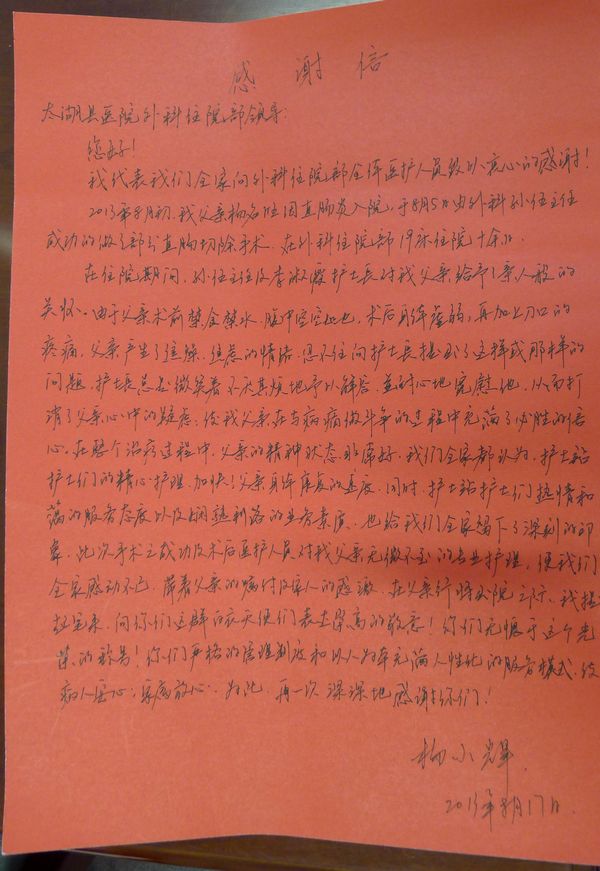 感谢信
太湖县医院外科住院部领导:
您好!
我代表我们全家向外科住院部全体医护人员致以衷心的感谢!
2013年8月初,我父亲杨名胜因直肠炎入院,于8月5日由外科孙伍主任
成功的做了部分直肠切除手术,在外科住院部19床住院十余日。
在住院期间,孙伍主任及李淑霞护士长对我父亲给予了亲人般的
关怀。由于父亲术前禁食禁水,腹中空空如也,术后身体虚弱,再加上刀口的
疼痛,父亲产生了焦燥、焦虑的情绪,忍不住向护士长提出了这样或那样的
问题,护士长总是微笑着不厌其烦地予以解答,并耐心地宽慰他,从而打
消了父亲心中的疑虑;使我父亲在与病痛做斗争的过程中充满了必胜的信
心。在整个治疗过程中,父亲的精神状态非常好。我们全家都认为,护士站
护士们的精心护理,加快了父亲身体康复的速度。同时,护士站护士们热情和
蔼的服务态度以及娴熟利落的业务素质,也给我们全家留下了深刻的印
象。此次手术之成功及术后医护人员对我父亲无微不至的专业护理,使我们
全家感动不已,带着父亲的嘱付及家人的感激,在父亲行将出院之际,我提
起笔来,向你们这群白衣天使们表去崇高的敬意!你们无愧于这个光
荣的称号!你们严格的管理制度和以人为本充满人性化的服务模式,使
病人安心,家属放心。为此,再一次深深地感谢你们!
杨小辉
2013年8月17日